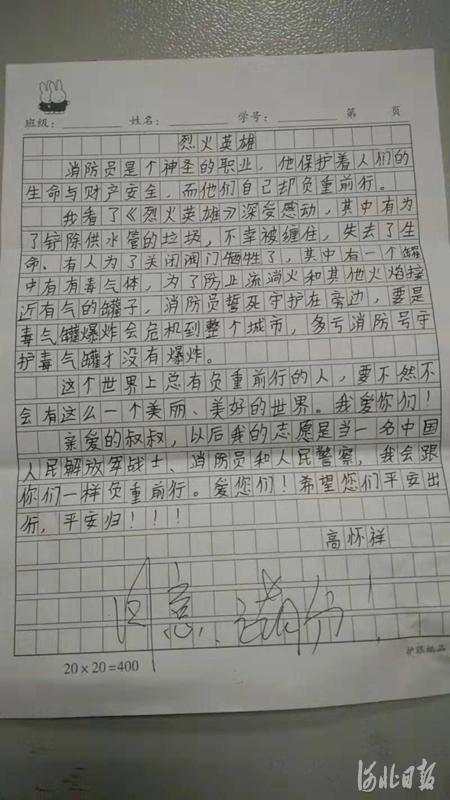 班级： 姓名： 学号： 第 页
烈火英雄
消防员是个神圣的职业，他保护着人们的
生命与财产安全，而他们自己却负重前行。
我看了《烈火英雄》深受感动，其中有为
了铲除供水管的垃圾，不幸被缠住，失去了生
命、有人为了关闭阀门牺牲了，其中有一个罐
中有有毒气体，为了防止流淌火和其他火焰接
近有气的罐子，消防员誓死守护在旁边，要是
毒气罐爆炸会危机到整个城市，多亏消防号守
护毒气罐才没有爆炸。
这个世界上总有负重前行的人，要不然不
会有这么一个美丽、美好的世界。我爱你们！
亲爱的叔叔，以后我的志愿是当一名中国
人民解放军战士、消防员和人民警察，我会跟
你们一样负重前行。爱您们！希望您们平安出
行，平安归！！！
高怀祥
20×20=400
河北日报